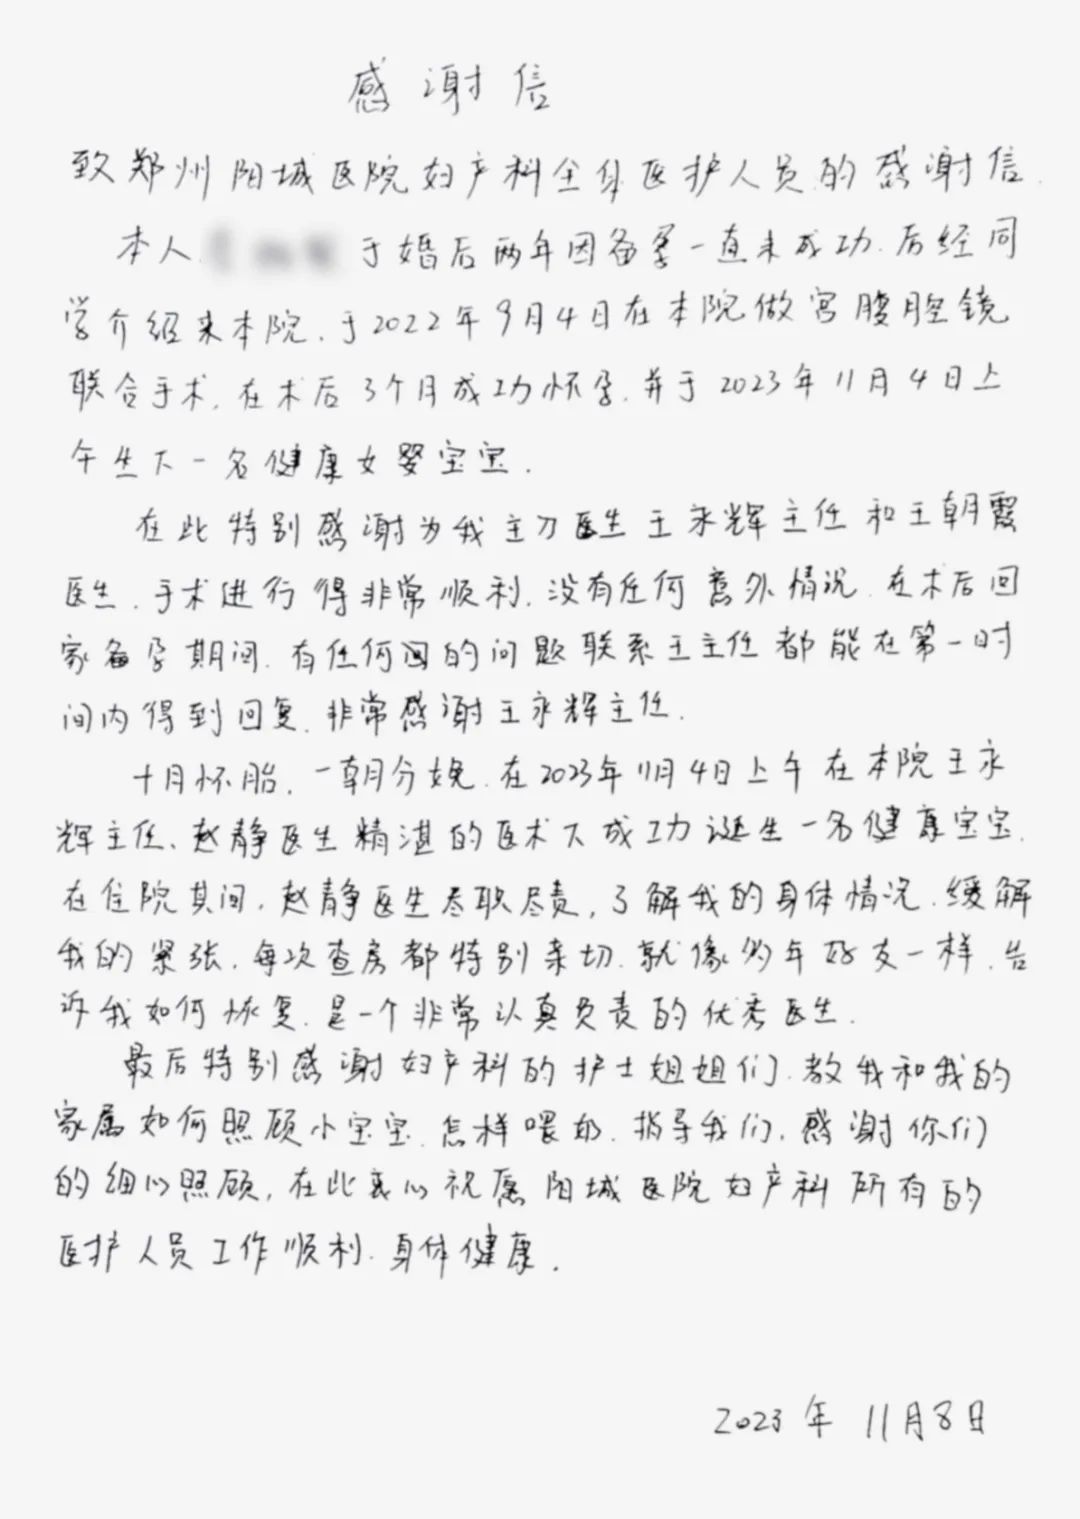 感谢信
致郑州阳城医院妇产科全体医护人员的感谢信
本人 于婚后两年因备孕一直未成功.后经同
学介绍来本院.于2022年9月4日在本院做宫腹腔镜
联合手术.在术后3个月成功怀孕.并于2023年11月4日上
午生下一名健康女婴宝宝.
在此特别感谢为我主刀医生王永辉主任和王朝霞
医生.手术进行得非常顺利.没有任何意外情况.在术后回
家备孕期间.有任何的问题联系王主任都能在第一时
间内得到回复.非常感谢王永辉主任.
十月怀胎.一朝分娩.在2023年11月4日上午在本院王永
辉主任、赵静医生精湛的医术下成功诞生一名健康宝宝.
在住院其间.赵静医生尽职尽责.了解我的身体情况.缓解
我的紧张.每次查房都特别亲切.就像多年好友一样.告
诉我如何恢复.是一个非常认真负责的优秀医生.
最后特别感谢妇产科的护士姐姐们.教我和我的
家属如何照顾小宝宝.怎样喂奶.指导我们.感谢你们
的细心照顾.在此衷心祝愿阳城医院妇产科所有的
医护人员工作顺利.身体健康.
2023年11月8日